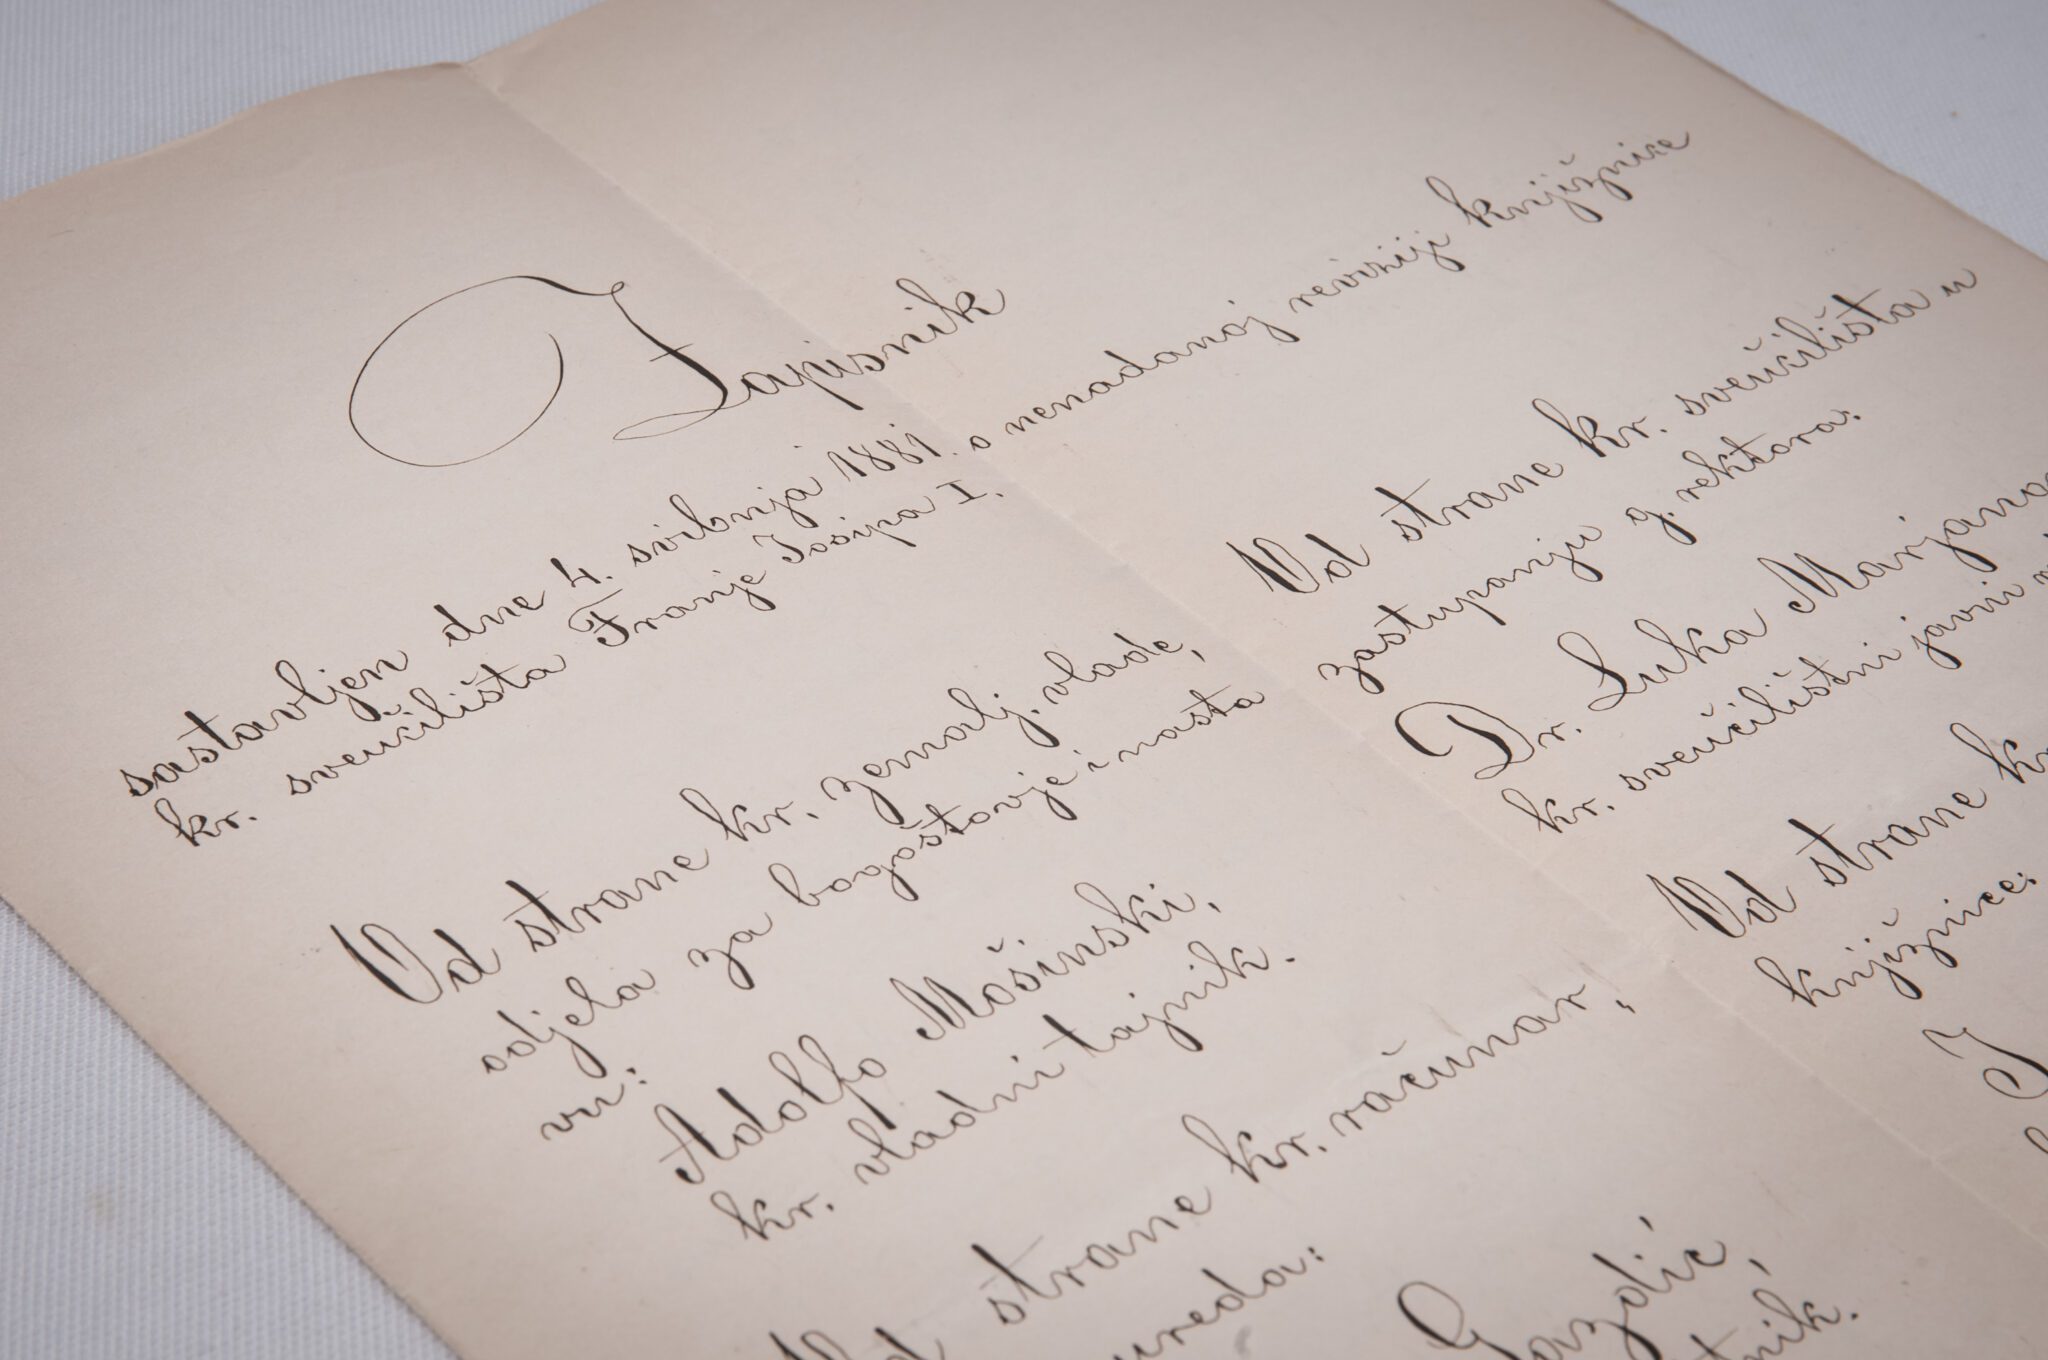 Zapisnik
sastavljen dne 4. svibnja 1881. o nenadanoj reviziji knjižnice
kr. sveučilišta Franje Josipa I.
Od strane kr. zemalj. vlade,
odjela za bogoštovje i nasta
vu:
Adolfo Mošinski,
kr. vladni tajnik.
Od strane kr. računar,
ureda:
Gazdić,
Od strane kr. sveučilišta u
zastupanju g. rektora:
Dr. Luka Marjano
kr. sveučilištni javni
Od strane kr
knjižnice: